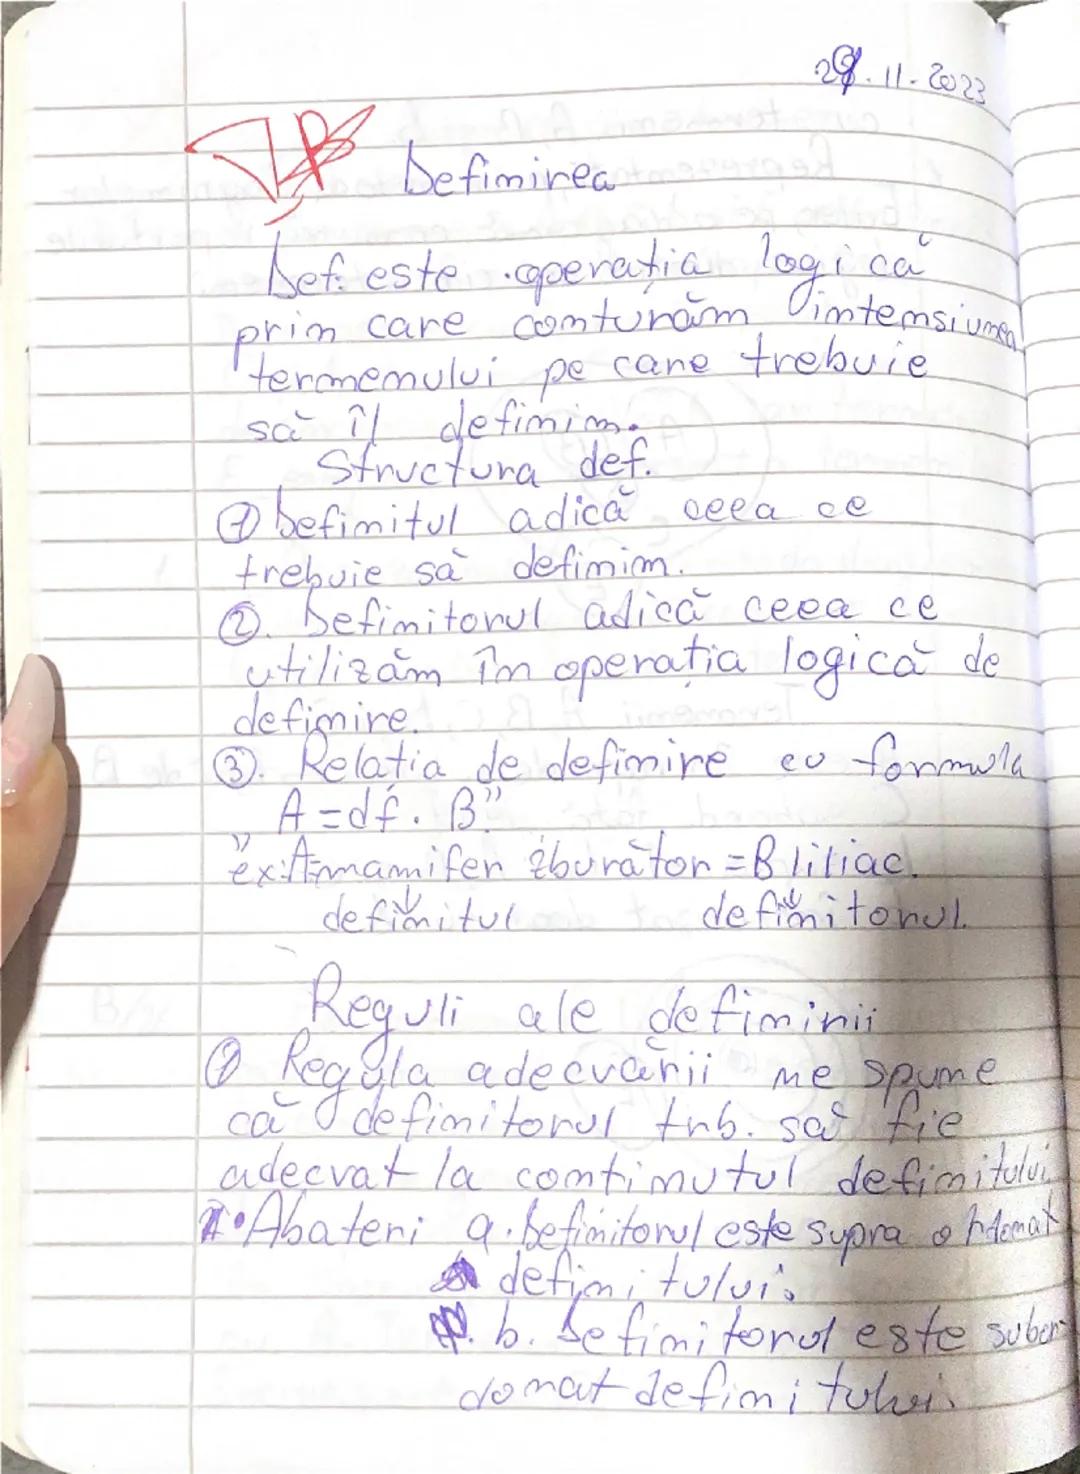 29.11.2023
Definirea
Def: este operația logică
prin care conturăm intensiunea
termenului pe care trebuie
să îl definim.
Structura def.
① Definitul adică ceea ce
trebuie să definim.
②. Definitorul adică ceea ce
utilizăm în operația logică de
definire.
③. Relația de definire cu formula
A = df. B"
"ex: A=mamifer zburător = B liliac.
definitul definitorul.
Reguli ale definirii
① Regula adecvării ne spune
că definitorul trb. să fie
adecvat la conținutul definitului
• Abateri a. Definitorul este supra
definitului.
b. Definitorul este subor-
donat definitului.